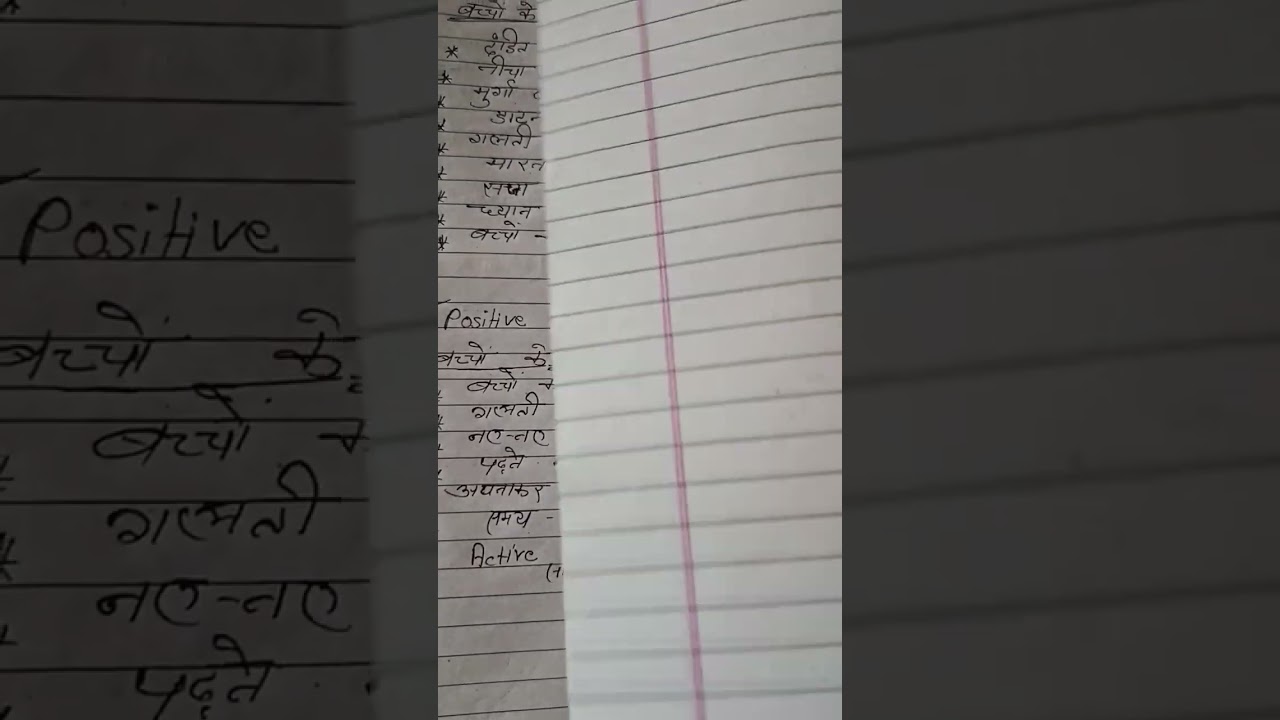 बच्चों के
* दंडित
* नीचा
* मुर्गा
* डाट
* गलती
* मारन
* सजा
* ध्यान
* बच्चों -
Positive
बच्चों के
* बच्चों
* गलती
* नए-नए
* पढ़ते
अपनाकर
समय -
Active